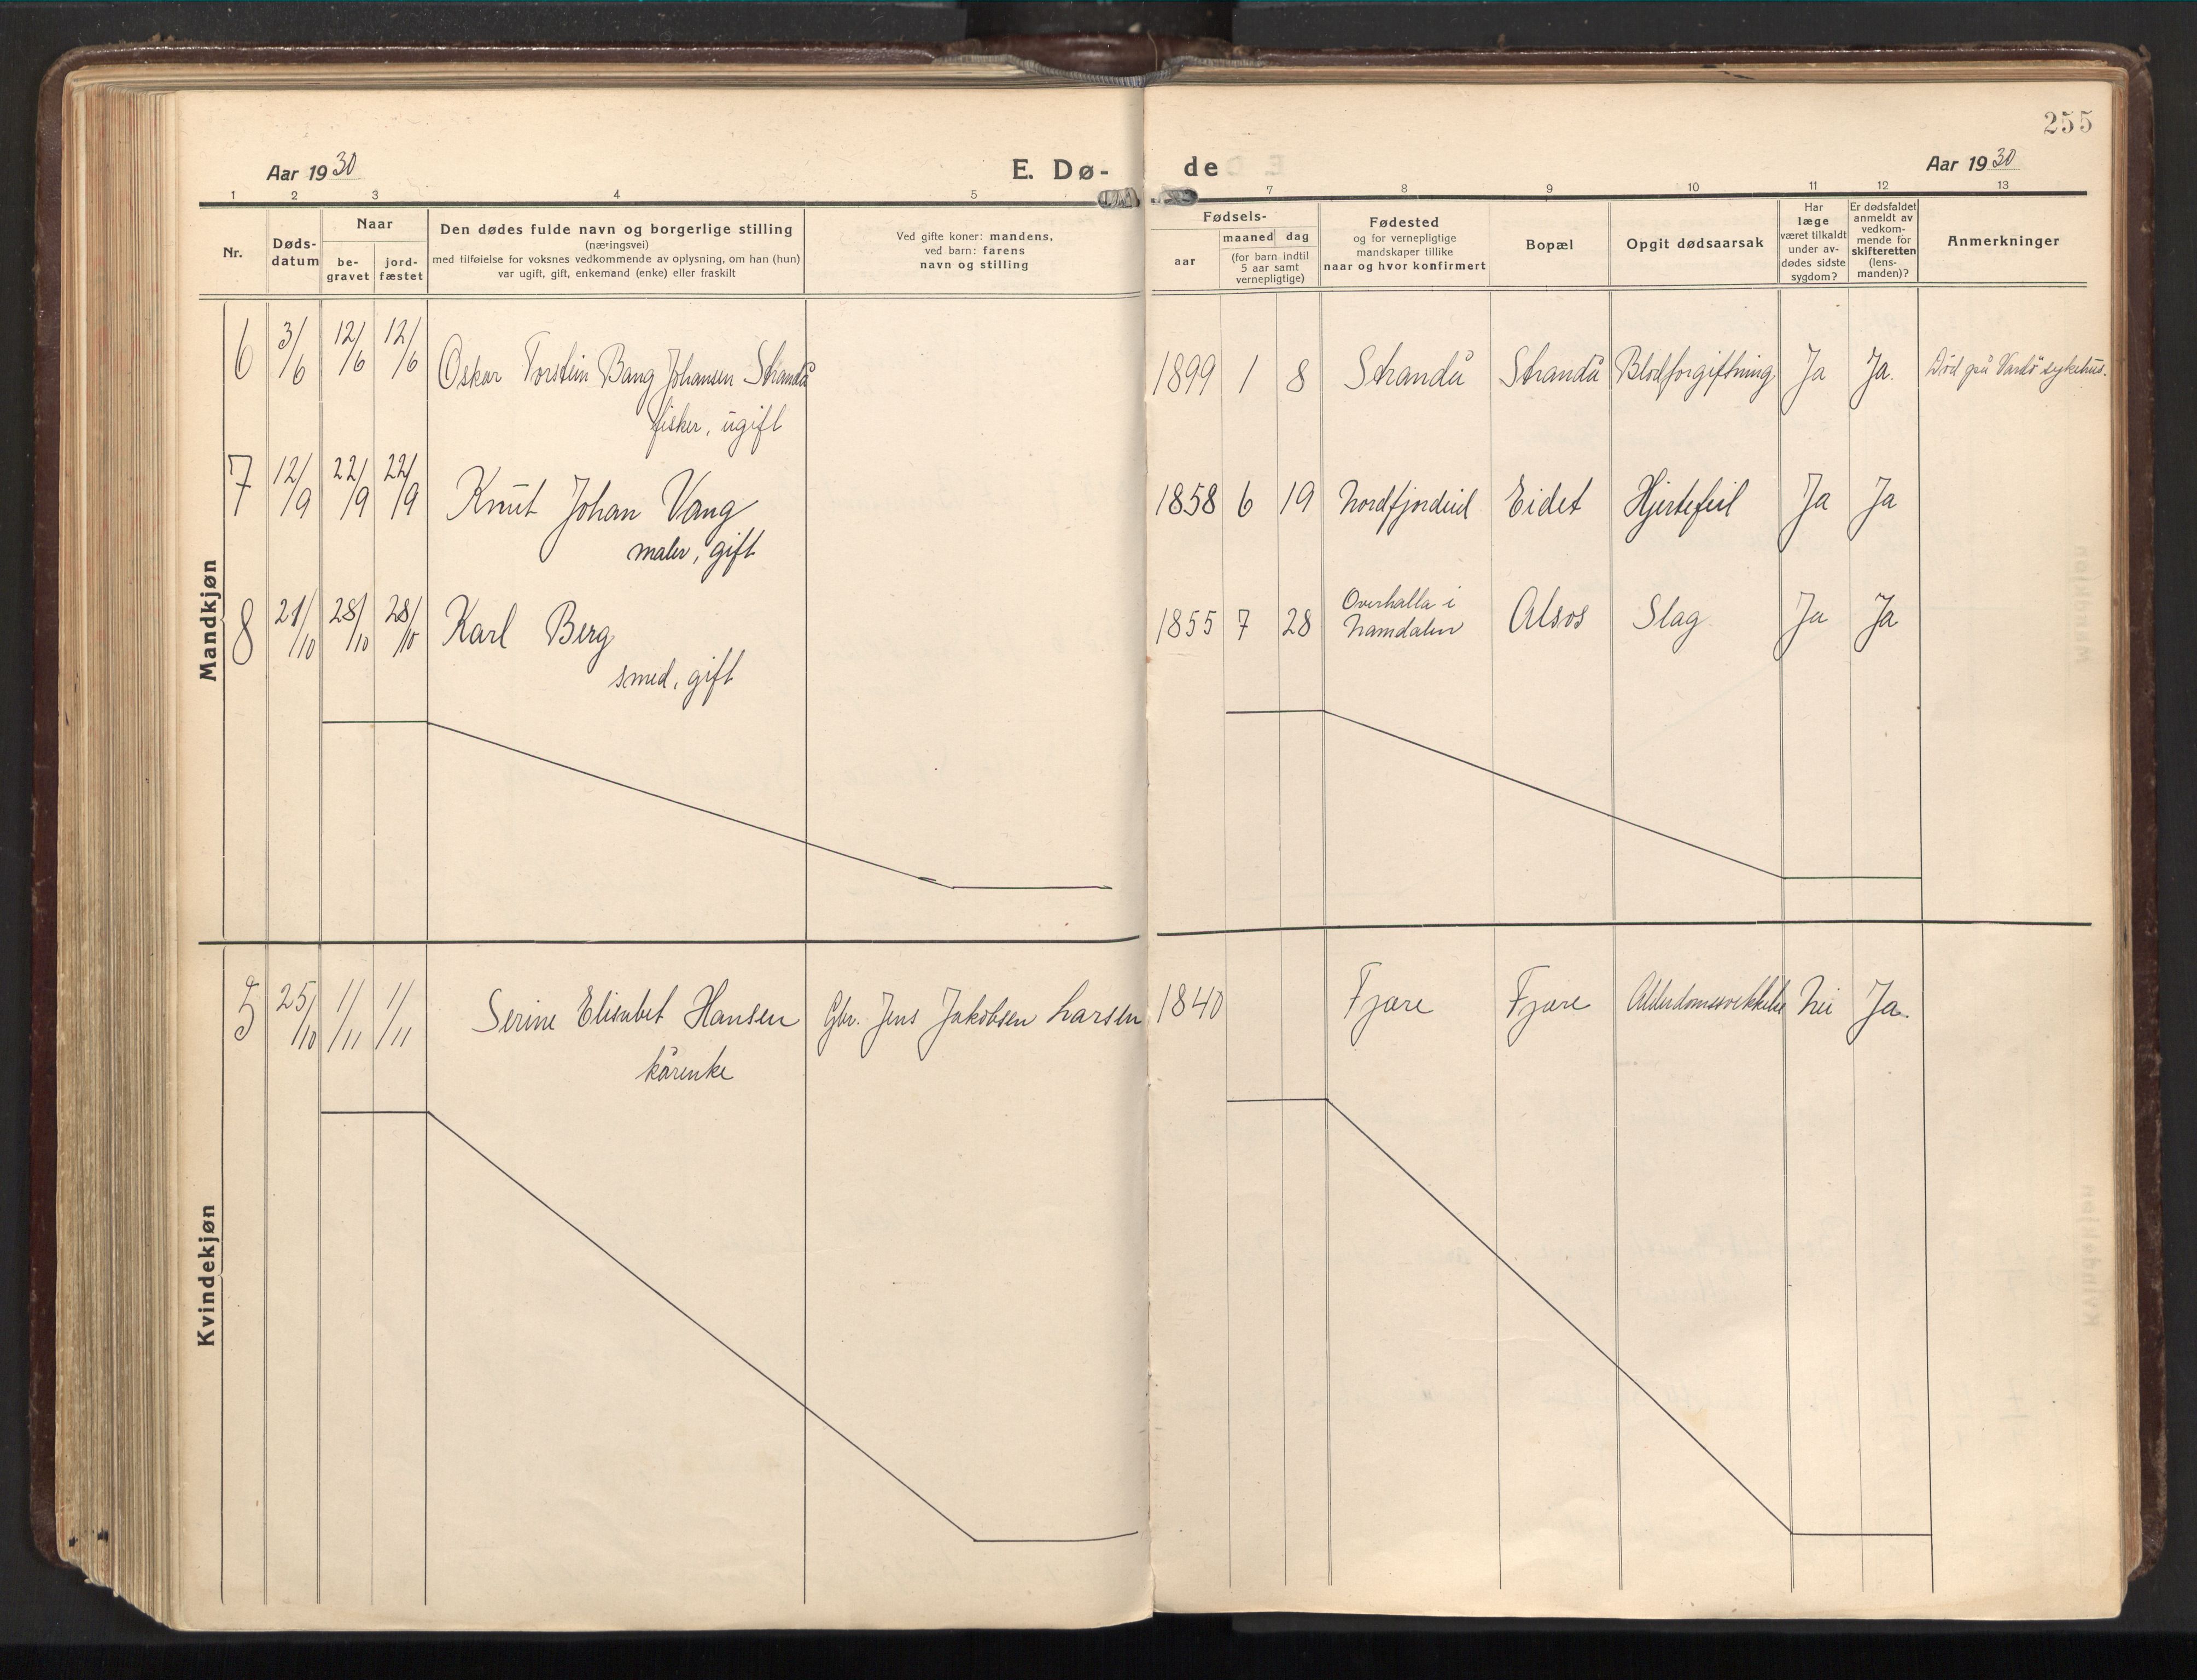 255
Aar 1930
E. Dø-
de
Aar 1930
1 2 3 4 5 7 8 9 10 11 12 13
Nr.
Døds-
datum
Naar
be-
gravet
jord-
fæstet
Den dødes fulde navn og borgerlige stilling
(næringsvei)
med tilføielse for voksnes vedkommende av oplysning, om han (hun)
var ugift, gift, enkemand (enke) eller fraskilt
Ved gifte koner: mandens,
ved barn: farens
navn og stilling
Fødsels-
aar
maaned dag
(for barn indtil
5 aar samt
vernepligtige)
Fødested
og for vernepligtige
mandskaper tillike
naar og hvor konfirmert
Bopæl
Opgit dødsaarsak
Har
læge
været tilkaldt
under av-
dødes sidste
sygdom?
Er dødsfaldet
anmeldt av
vedkom-
mende for
skifteretten
(lens-
manden)?
Anmerkninger
Mandkjøn
6 3/6 12/6 12/6 Oskar Torstein Bang Johansen Strandå 1899 1 8 Strandå Strandå Blodforgiftning Ja Ja. Død på Vardø sykehus.
fisker, ugift
7 12/9 22/9 22/9 Knut Johan Vang 1858 6 19 Nordfjordeid Eidet Hjertefeil Ja Ja
maler, gift
8 21/10 28/10 28/10 Karl Berg 1855 7 28 Overhalla i
Namdalen Alsos Slag Ja Ja
smed, gift
Kvindekjøn
5 25/10 1/11 1/11 Serine Elisabet Hansen Gbr. Jens Jakobsen Larsen 1840 Fjære Fjære Alderdomssvekkelse Nei Ja.
kårenke